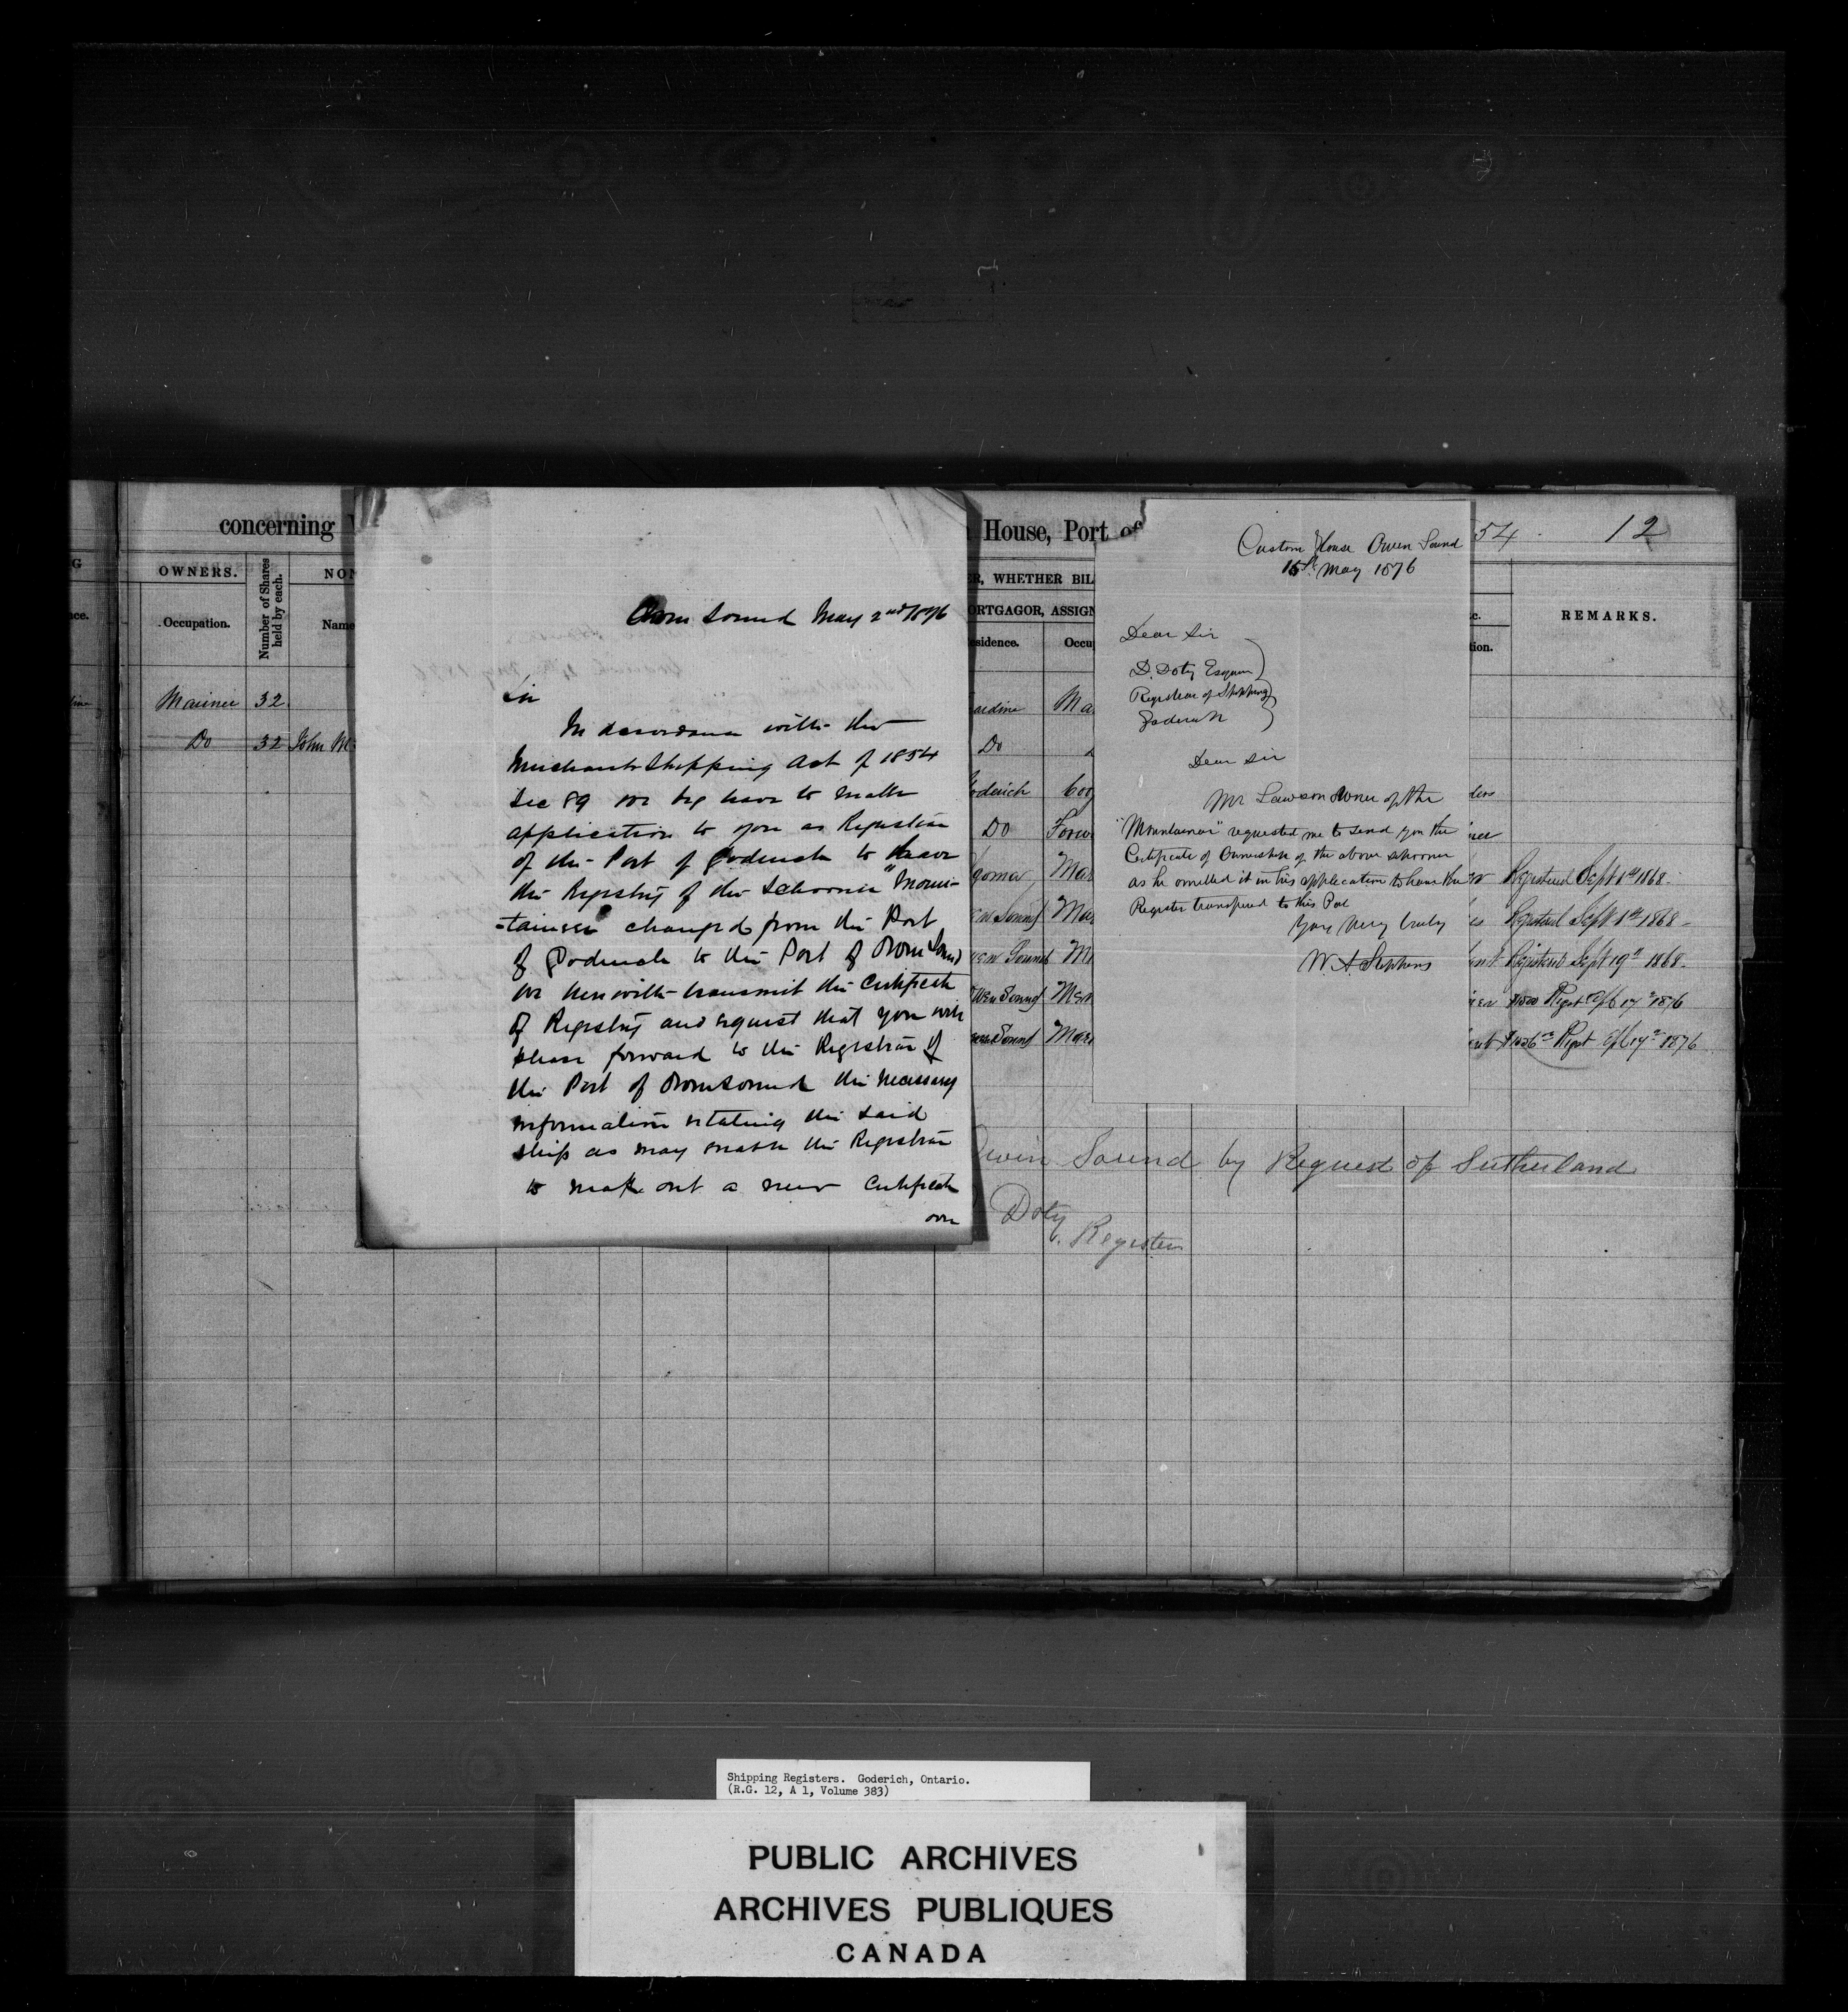 concerning
House, Port of
54
12
OWNERS.
Number of Shares held by each.
NO
Occupation.
Name
ER, WHETHER BIL
ORTGAGOR, ASSIGN
esidence.
Occu
REMARKS.
tion.
Mariner 32
Do 32 John M
ardine Ma
Do
oderich
Do Forw
goma Mar
en Sound Mar
wen Sound M
wen Sound Mar
wen Sound Mar
Registered Sept 1st 1868
Registered Sept 1st 1868
Registered Sept 19th 1868
$1500 Regst 17th 1876
Regst 17th 1876
Owen Sound by Request of Sutherland
Doty
Register
Owen Sound May 2nd 1876
Sir
In accordance with the
Merchants Shipping Act of 1854
Sec 89 we beg leave to make
application to you as Registrar
of the Port of Goderich to have
the Registry of the Schooner "Moun-
-taineer" changed from the Port
of Goderich to the Port of Owen Sound
We herewith transmit the Certificate
of Registry and request that you will
please forward to the Registrar of
the Port of Owen Sound the necessary
information relating the said
ship as may enable the Registrar
to make out a new Certificate
over
Custom House Owen Sound
15th May 1876
Dear Sir
D. Doty Esquire
Registrar of Shipping
Goderich
Dear Sir
Mr Lawson owner of the
"Mountaineer" requested me to send you the
Certificate of Ownership of the above schooner
as he omitted it in his application to have the
Register transfered to this Port
Yours Very truly
W. A Stephens
Shipping Registers. Goderich, Ontario.
(R.G. 12, A 1, Volume 383)
PUBLIC ARCHIVES
ARCHIVES PUBLIQUES
CANADA